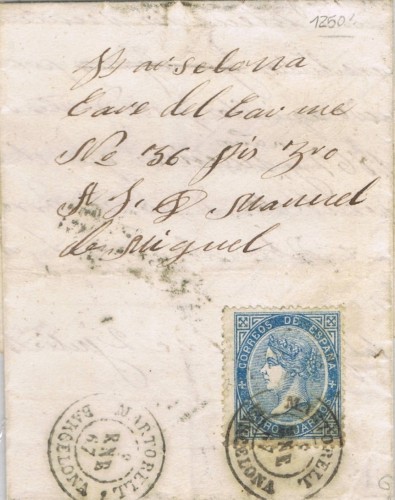 1250
Barselona
Care del Carme
No 36 pis 3ro
A S. D Manuel
de Miguel
CORREOS DE ESPAÑA
CUATRO CUARTOS
MARTORELL
ENE
67
BARCELONA
MARTORELL
ENE
67
BARCELONA